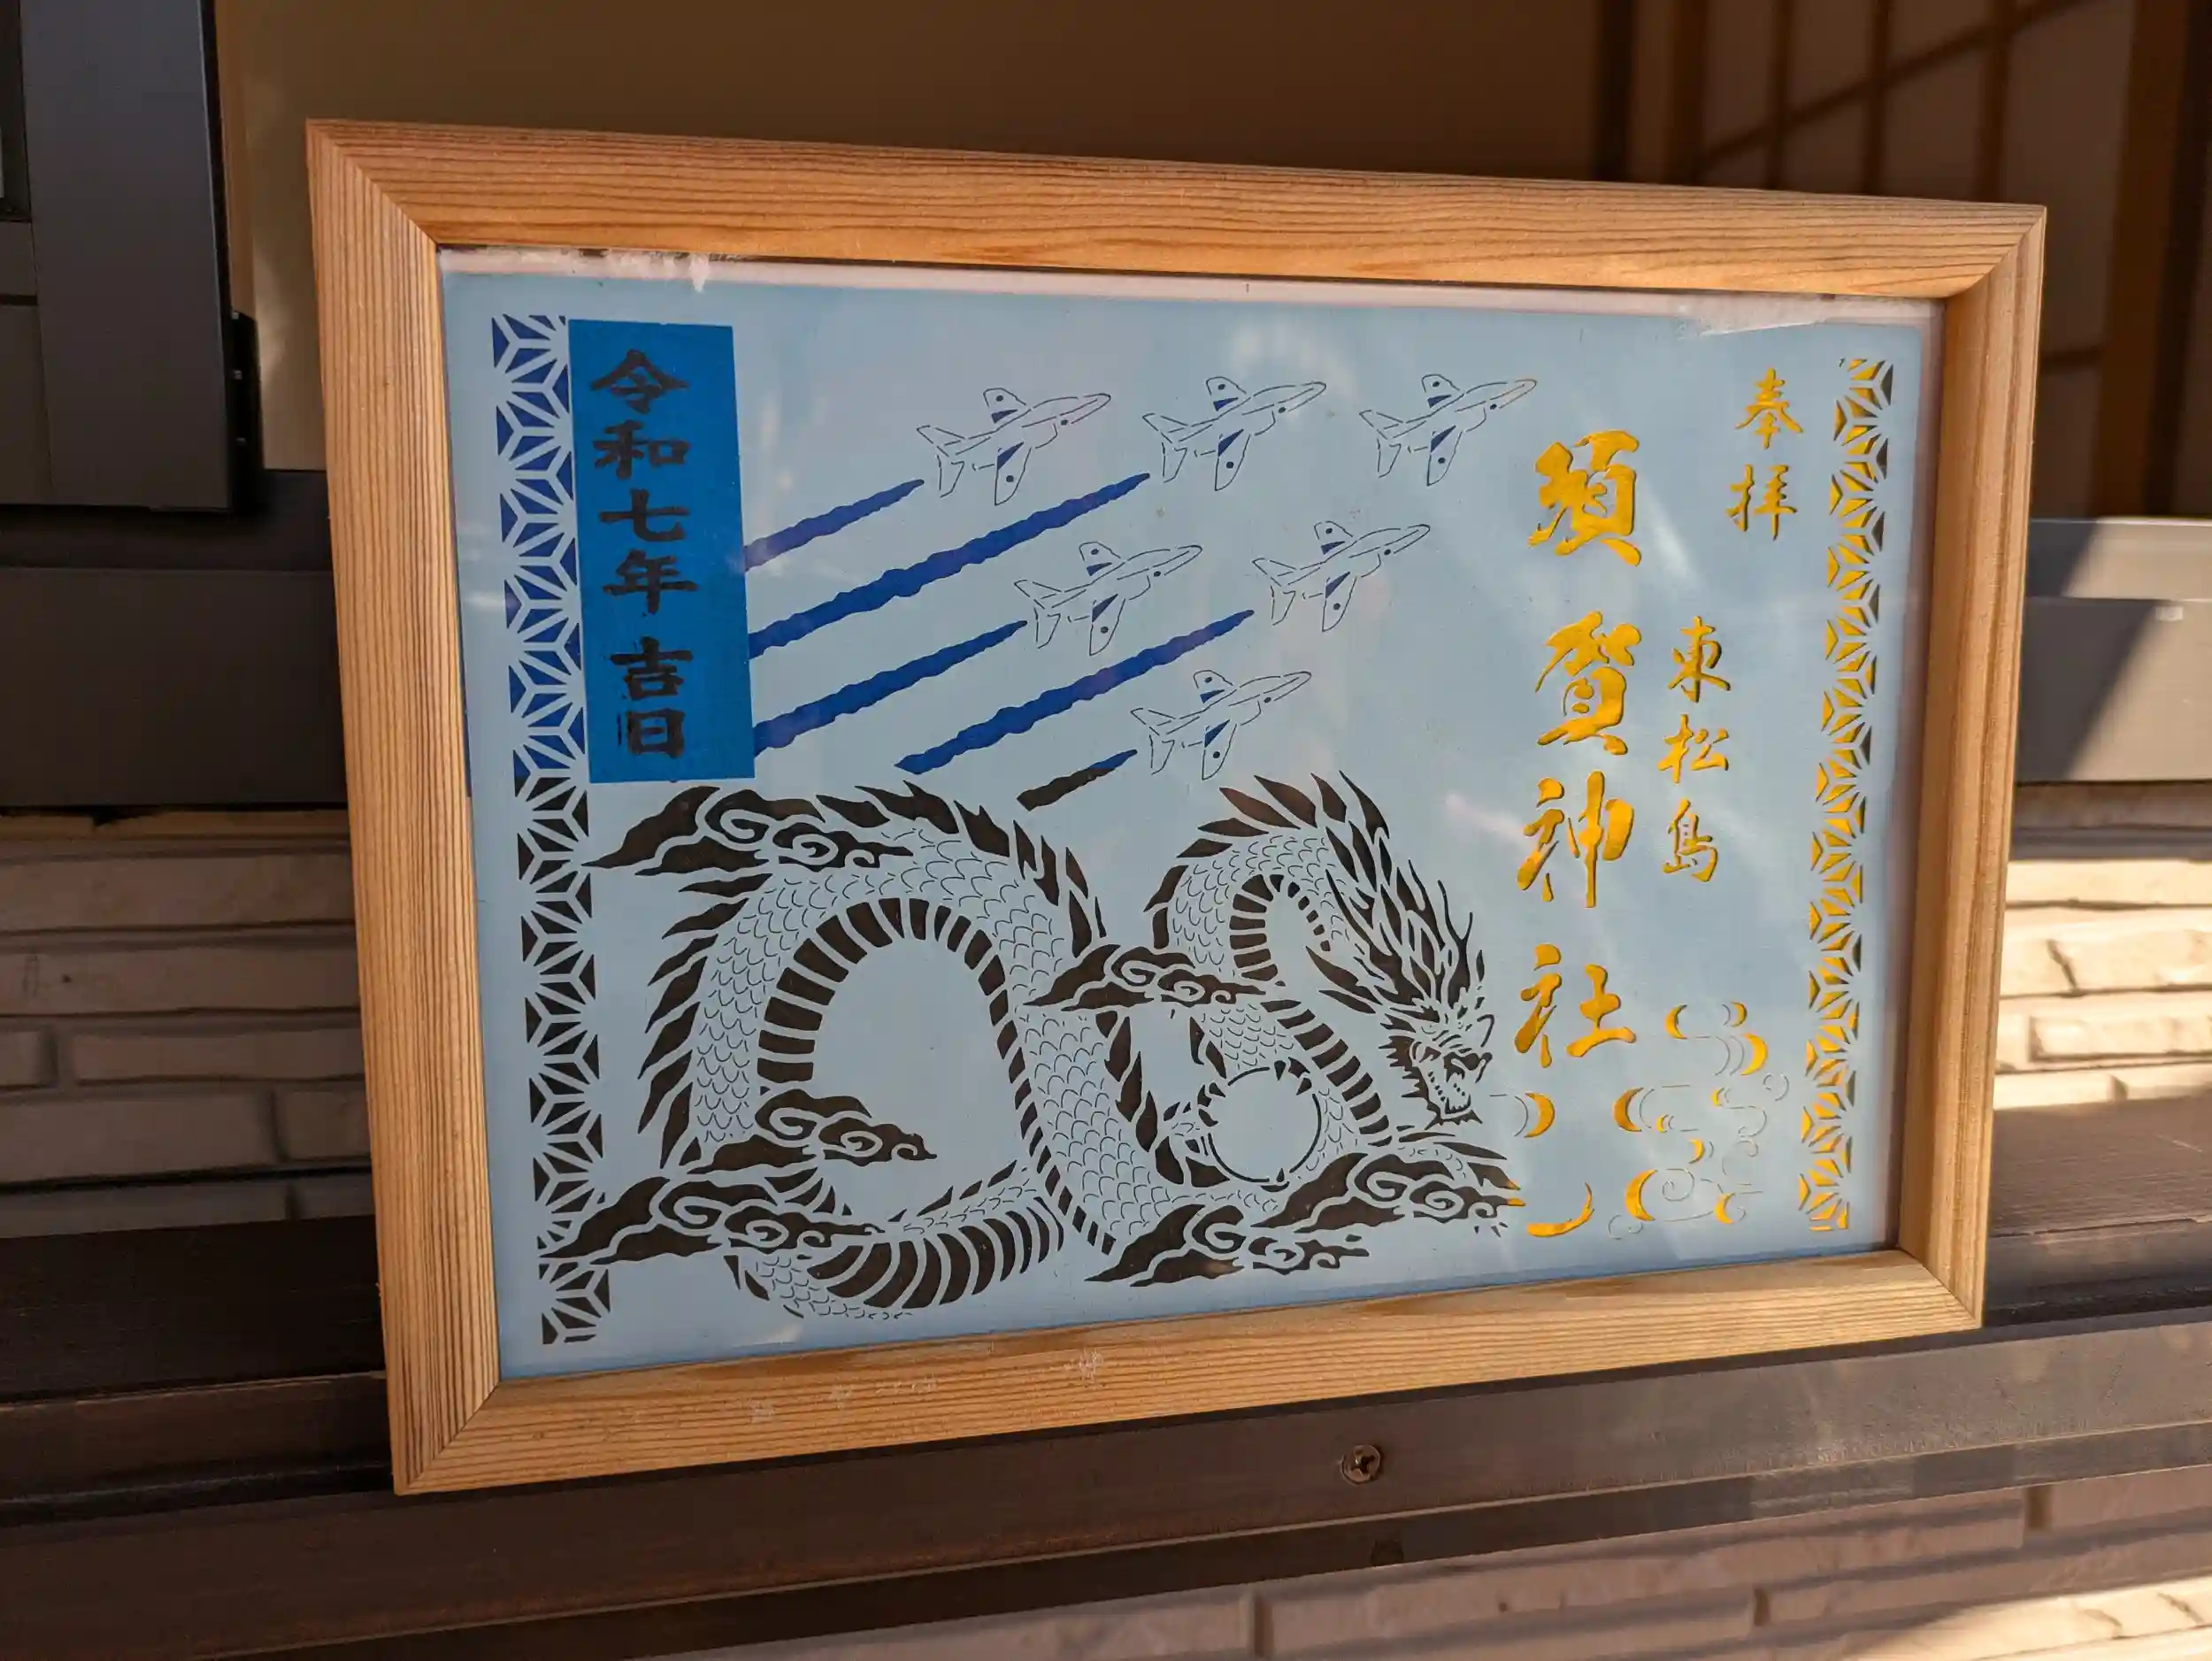 奉拝
東松島
須賀神社
令和七年 吉日